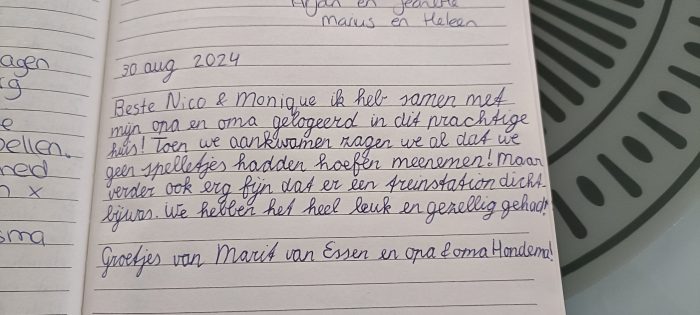 Arjan en Jeanette
marius en Heleen
30 aug 2024
Beste Nico & Monique ik heb samen met
mijn opa en oma gelogeerd in dit prachtige
huis! Toen we aankwamen zagen we al dat we
geen spelletjes hadden hoefen meenemen! Maar
verder ook erg fijn dat er een treinstation dicht
bijwas. We hebben het heel leuk en gezellig gehad!
Groetjes van Marit van Essen en opa & oma Hondema!
agen
rg
e
bellen.
n x
sma